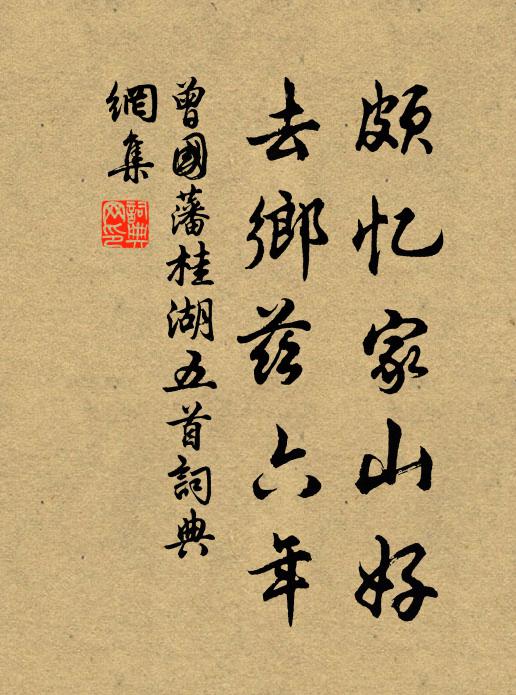 頗忆家山好
去鄉兹六年
曾國藩桂湖五首詞典
網集
詞典
网印